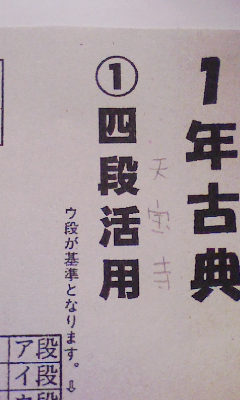 1年古典
天宝寺
①四段活用
ウ段が基準となります。⇩
ア段
イ段